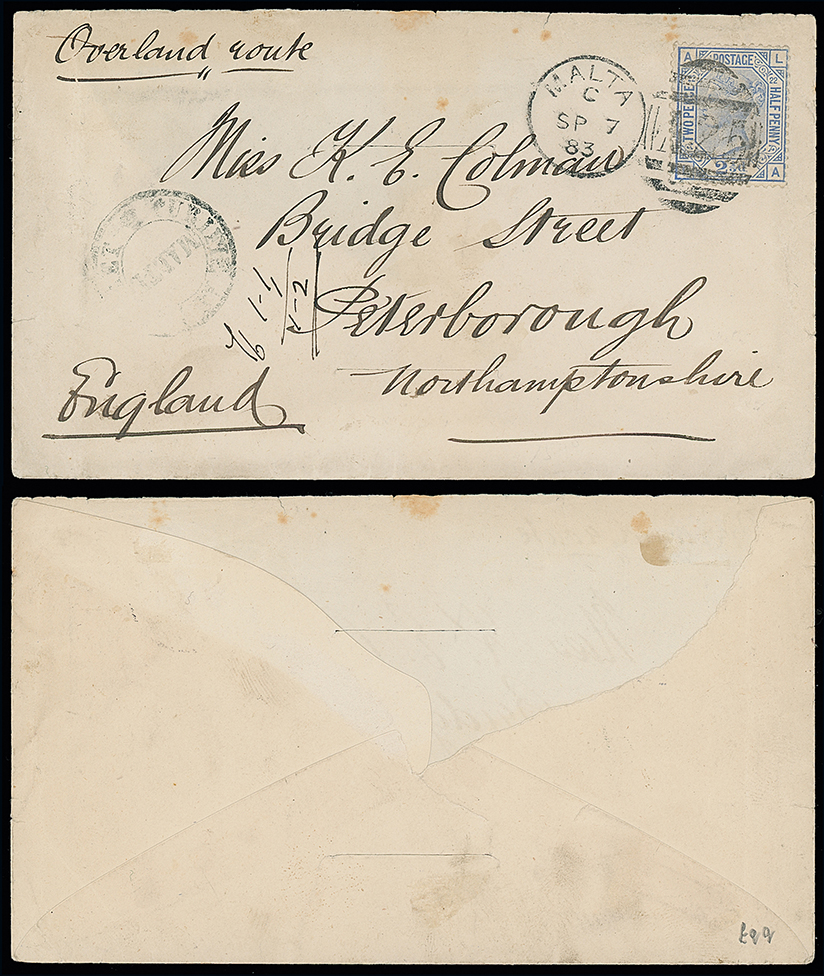 Overland route
MALTA
C
SP 7
83
A POSTAGE L
TWOPENCE
HALFPENNY
A
Miss K. E. Colman
Bridge Street
Peterborough
Northamptonshire
England
1-1
1-2